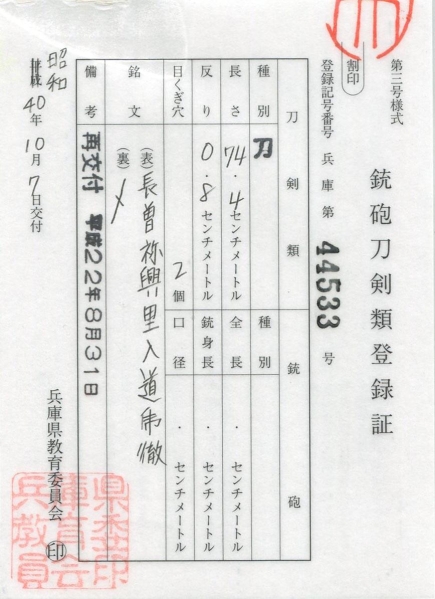 第三号様式
割印
銃砲刀剣類登録証
登録記号番号 兵庫 第 44533 号
刀剣類 銃砲
種別 刀 種別
長さ 74.4センチメートル 全長 .センチメートル
反り 0.8センチメートル 銃身長 .センチメートル
目くぎ穴 2個 口径 .センチメートル
銘文 (表) 長曽祢興里入道乕徹
(裏) メ
備考 再交付 平成22年8月31日
昭和
平成40年10月7日交付
兵庫県教育委員会 印
兵庫県教育委員会印